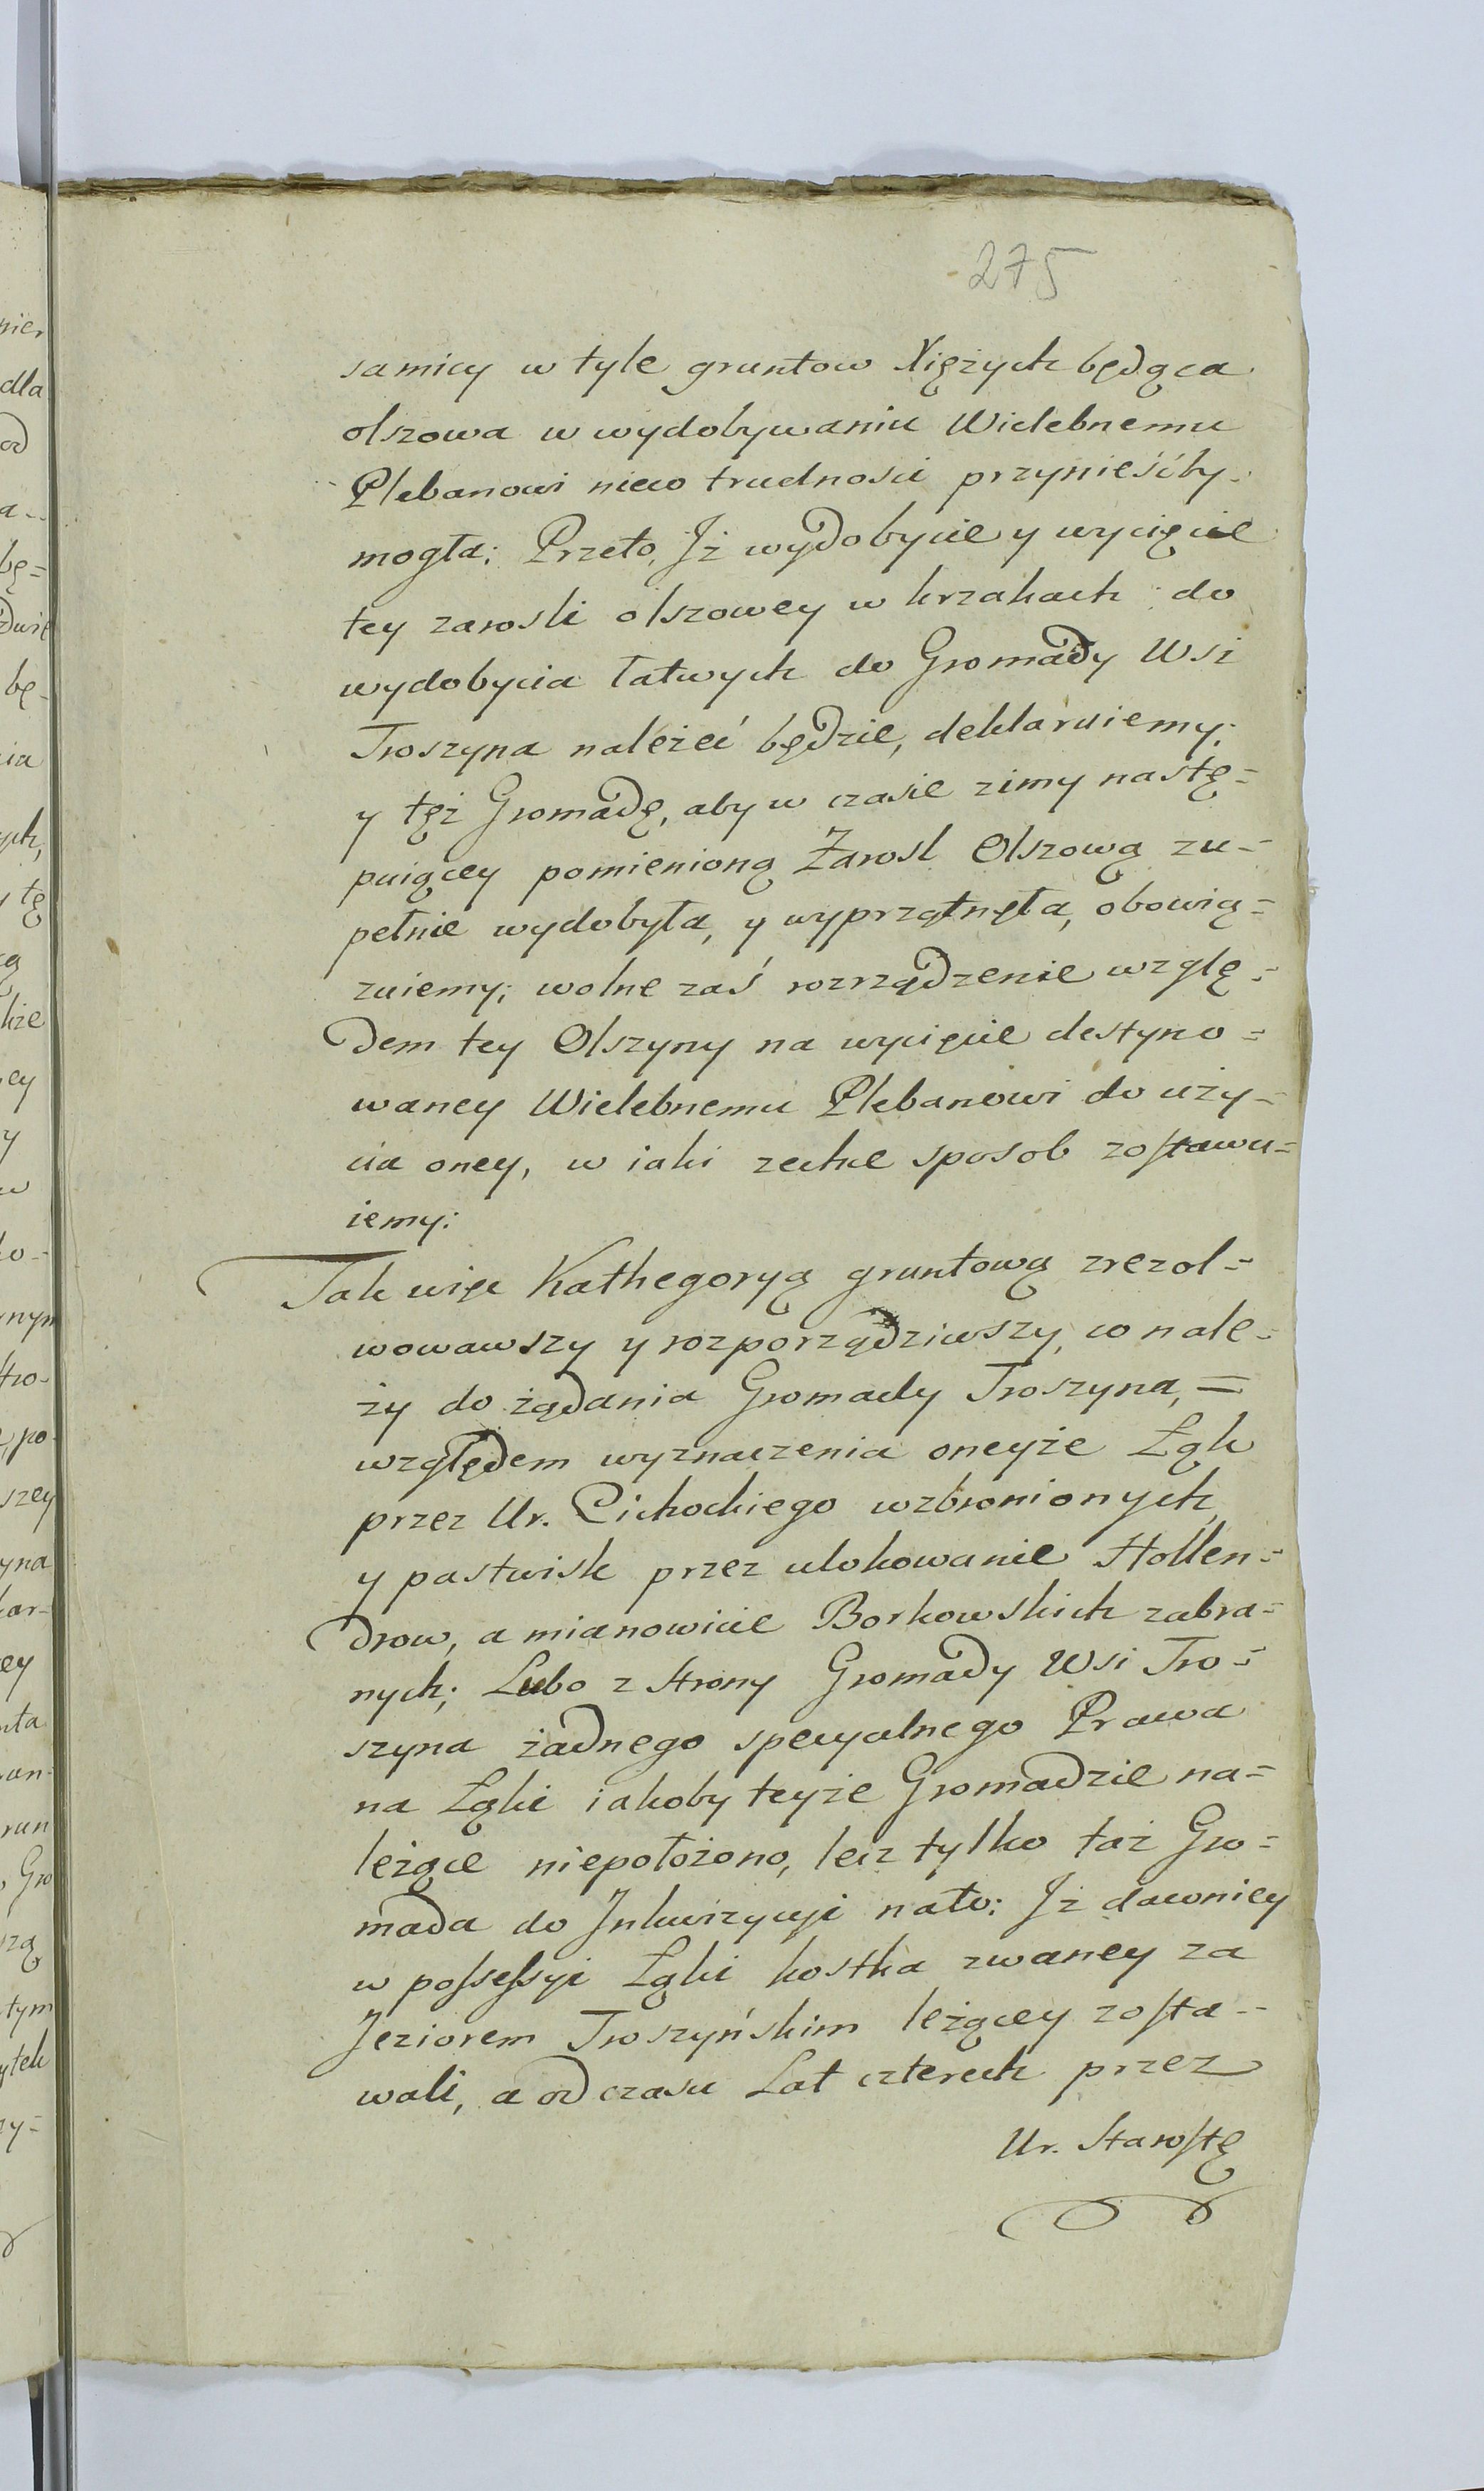 275
samicy w tyle gruntow Xiężych będąca
olszowa w wydobywaniu Wielebnemu
Plebanowi nieco trudnosci przynieśćby
mogła: Przeto, Jż wydobycie y wycięcie
tey zarosli olszowey w krzakach do
wydobycia łatwych do Gromady Wsi
Troszyna należeć będzie, deklaruiemy;
y tęż Gromadę, aby w czasie zimy nastę=
puiącey pomienioną Zarosl Olszową zu=
pełnie wydobyła, y wyprzątnęła, obowią=
zuiemy; wolne zaś rozrządzenie wzglę=
dem tey Olszyny na wycięcie destyno=
waney Wielebnemu Plebanowi do uży=
cia oney, w iaki zechce sposob zostawu=
iemy:
Tak więc Kathegoryą gruntową zrezol=
wowawszy y rozporządziwszy, co nale=
ży do żądania Gromady Troszyna, =
względem wyznaczenia oneyże Łąk
przez Ur. Cichockiego wzbronionych
y pastwisk przez ulokowanie Hollen=
drow, a mianowicie Borkowskich zabra=
nych; Lubo z strony Gromady Wsi Tro=
szyna żadnego specyalnego Prawa
na Łąki iakoby teyże Gromadzie na=
leżące niepołożono, lecz tylko taż Gro=
mada do Jnkwizycyi nato: Jż dawniey
w possessyi Łąki kostka zwaney za
Jeziorem Troszyńskim leżącey zosta=
wali, a od czasu Lat czterech przez
Ur. Starostę
nie,
dla
od
bę=
bę=
ia
ych,
y tę
kże
ey
y
w
nym
po
szey
yna
ey
run
Gro
tym